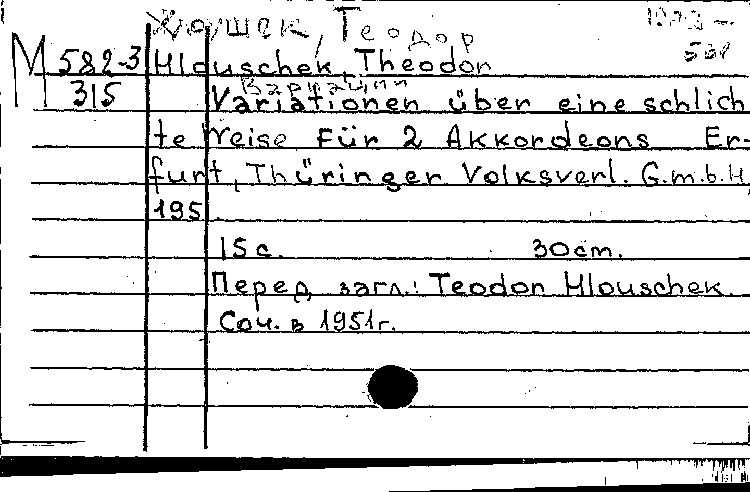 Хлоушек, Теодор
М 582-3 Hlouschek, Theodor
315 Вариации
Variationen über eine schlich
te Weise Für 2 Akkordeons Er-
furt, Thüringer Volksverl. G.m.b.H,
195
15 с. 30 cm.
Перед загл.: Teodon Hlouschek.
Соч. в 1951г.